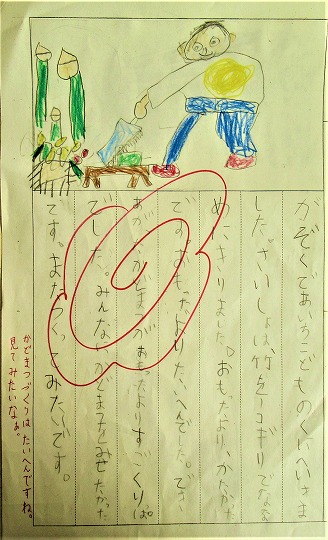 かぞくであいちこどものくにへいきま
した。さいしょは竹をノコギリでなな
めにきりました。おもったより、かたかった
です。おもったよりたいへんでした。でき
あがったかどまつがおもったよりすごくりっぱ
でした。みんなにかどまつをみせたかった
です。またつくってみたいです。
かどまつづくりはたいへんですね。
見てみたいなぁ。